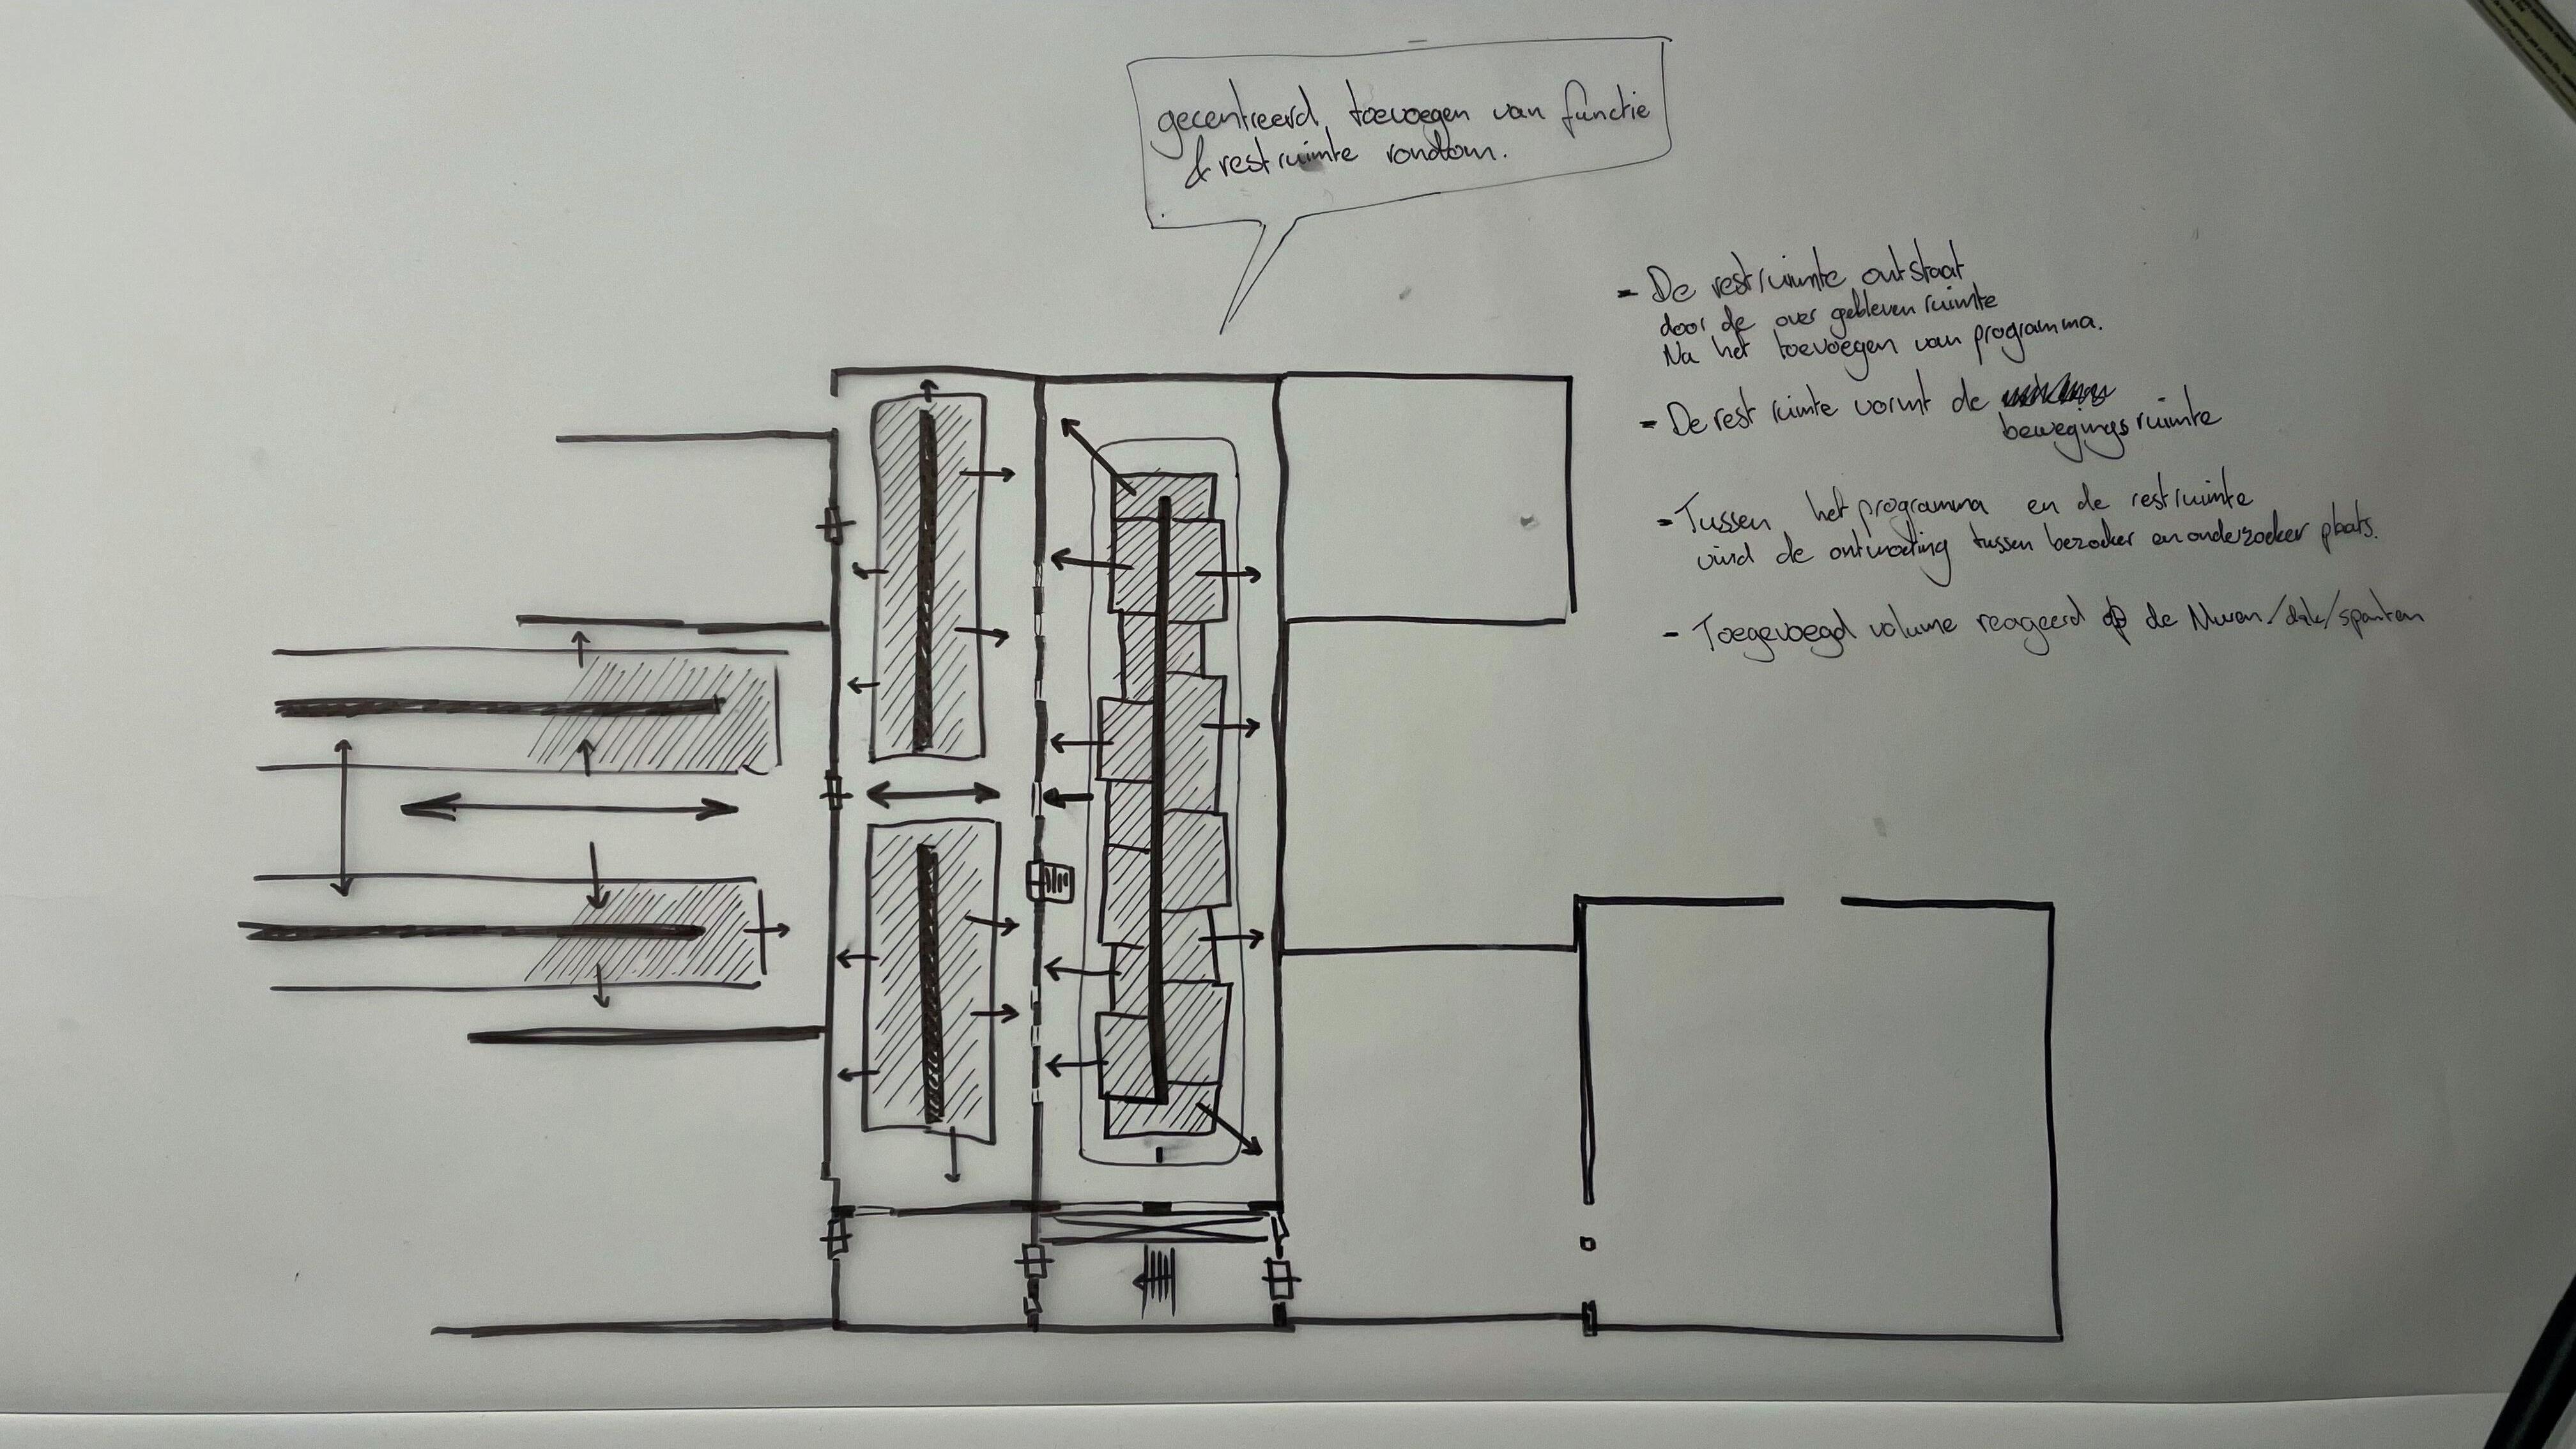 gecentreerd toevoegen van functie
& restruimte rondom.
- De restruimte ontstaat
door de over gebleven ruimte
Na het toevoegen van programma.
- De rest ruimte vormt de
bewegings ruimte
- Tussen het programma en de restruimte
vind de ontmoeting tussen bezoeker en onderzoeker plaats.
- Toegevoegd volume reageerd op de Muren/dak/spanten